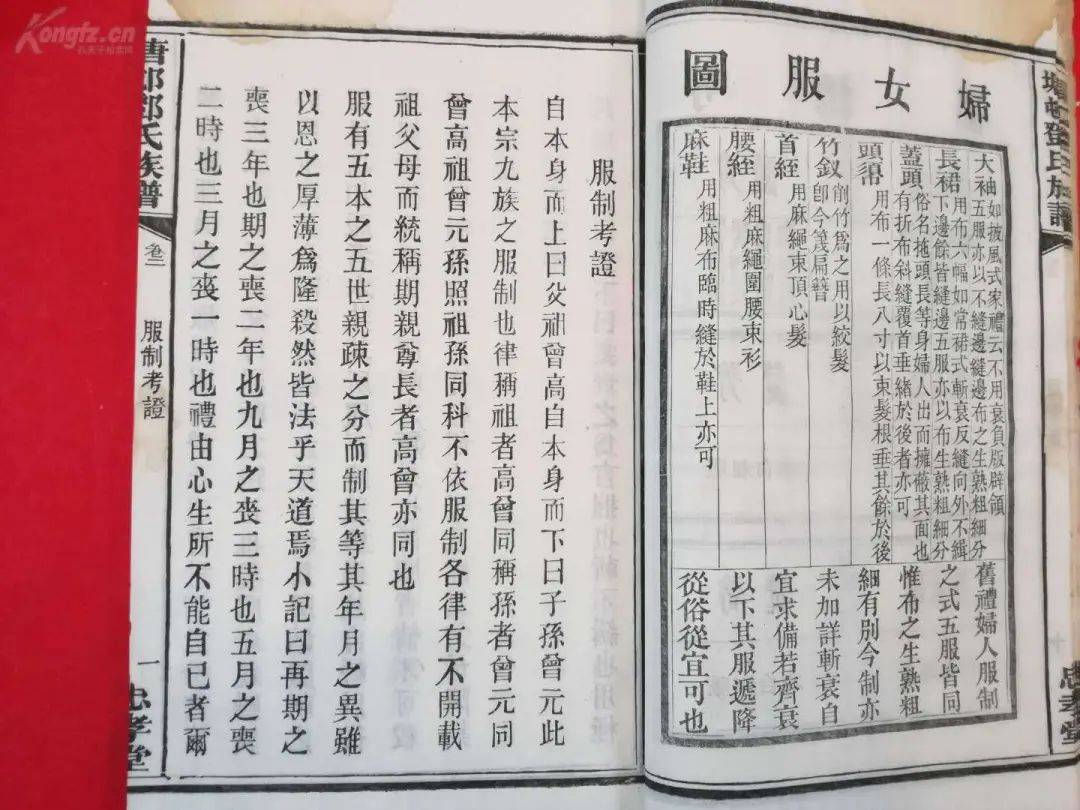 Kongfz.cn
孔夫子舊書網
婦女服圖
大袖 如披風式家禮云不用衰負版辟領
五服亦以不縫邊縫邊布之生熟粗細分
長裙 用布六幅如常裙式斬衰反縫向外不緝
下邊餘皆縫邊五服亦以布生熟粗細分
蓋頭 俗名拖頭長等身婦人出而擁蔽其面也
有折布斜縫覆首垂緒於後者亦可
頭 用布一條長八寸以束髮根垂其餘於後
竹釵 削竹爲之用以絞髮
卽今篾扁簪
首絰 用麻繩束頂心髮
腰絰 用粗麻繩圍腰束衫
麻鞋 用粗麻布臨時縫於鞋上亦可
舊禮婦人服制
之式五服皆同
惟布之生熟粗
細有別今制亦
未加詳斬衰自
宜求備若齊衰
以下其服遞降
從俗從宜可也
鄧氏族譜
忠孝堂
服制考證
自本身而上曰父祖曾高自本身而下曰子孫曾元此
本宗九族之服制也律稱祖者高曾同稱孫者曾元同
曾高祖曾元孫照祖孫同科不依服制各律有不開載
祖父母而統稱期親尊長者高曾亦同也
服有五本之五世親疎之分而制其等其年月之異雖
以恩之厚薄爲隆殺然皆法乎天道焉小記曰再期之
喪三年也期之喪二年也九月之喪三時也五月之喪
二時也三月之喪一時也禮由心生所不能自已者爾
氏族譜
卷二
服制考證
一
忠孝堂